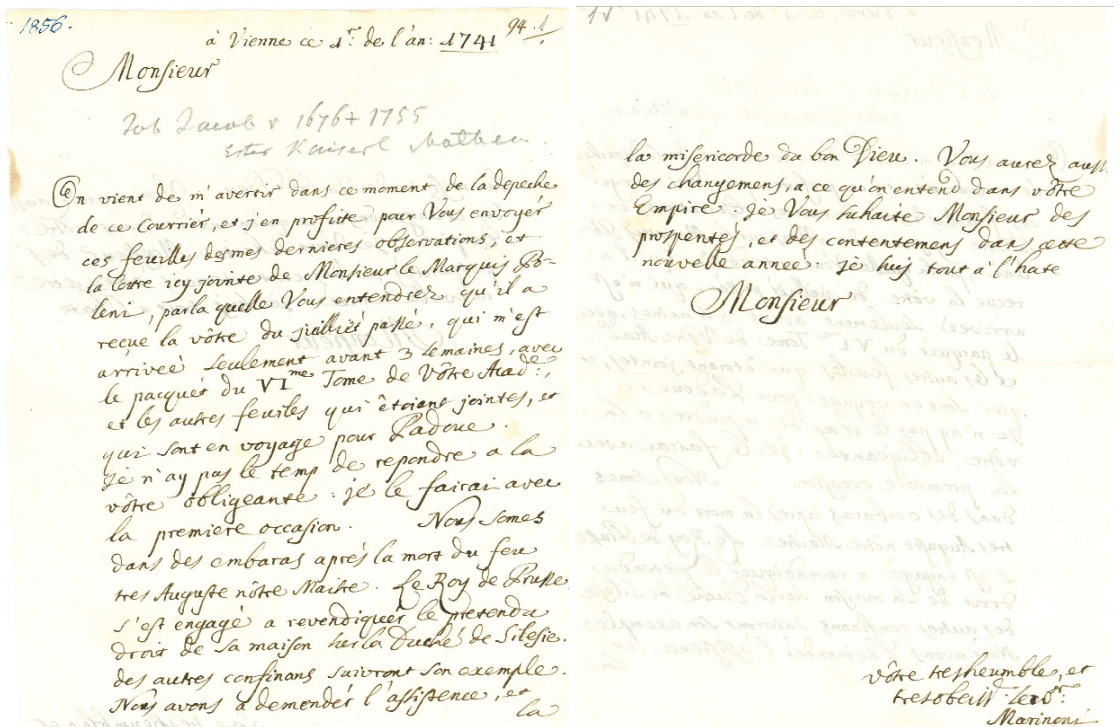 1856.
94.1
à Vienne ce 1r. de l'an: 1741
Monsieur
Joh Jacob v 1676 + 1755
Erster Kaiserl Mathem.
On vient de m'avertir dans ce moment de la depeche
de ce Courriér, et j'en profite pour Vous envoyér
ces feuilles de mes dernieres observations, et
la lettre icy jointe de Monsieur le Marquis Po-
leni, par la quelle Vous entendrez qu'il a
reçue la vôtre du juilliét passé, qui m'est
arrivée seulement avant 3 semaines, avec
le pacquét du VIme Tome de Vôtre Acade:,
et les autres feuiles qui êtoient jointes, et
qui sont en voyage pour Padoue.
Je n'ay pas le temp de repondre a la
vôtre obligeante: je le fairai avec
la premiere occasion. Nous somes
dans des embaras aprés la mort du feu
tres Auguste nôtre Maitre. Le Roy de Prusse
s'est engagé a revendiquér le pretendu
droit de sa maison sur la Duché de Silesie.
des autres confinans suivront son exemple.
Nous avons a demendér l'assistence, et
la
la misericorde du bon Dieu. Vous aurez aussi
des changemens, a ce qu'on entend dans vôtre
Empire. je Vous suhaite Monsieur des
prosperités, et des contentemens dans cette
nouvelle année. je suis tout à l'hate
Monsieur
vôtre tresheumble, et
tresobeiss. servr.
Marinoni